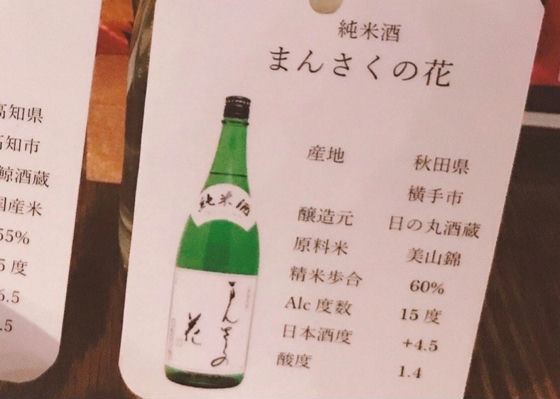 純米酒
まんさくの花
産地 秋田県
横手市
醸造元 日の丸酒蔵
原料米 美山錦
精米歩合 60%
Alc度数 15度
日本酒度 +4.5
酸度 1.4
純米酒
まんさくの
花
高知県
高知市
鯨酒蔵
国産米
55%
5度
6.5
.5